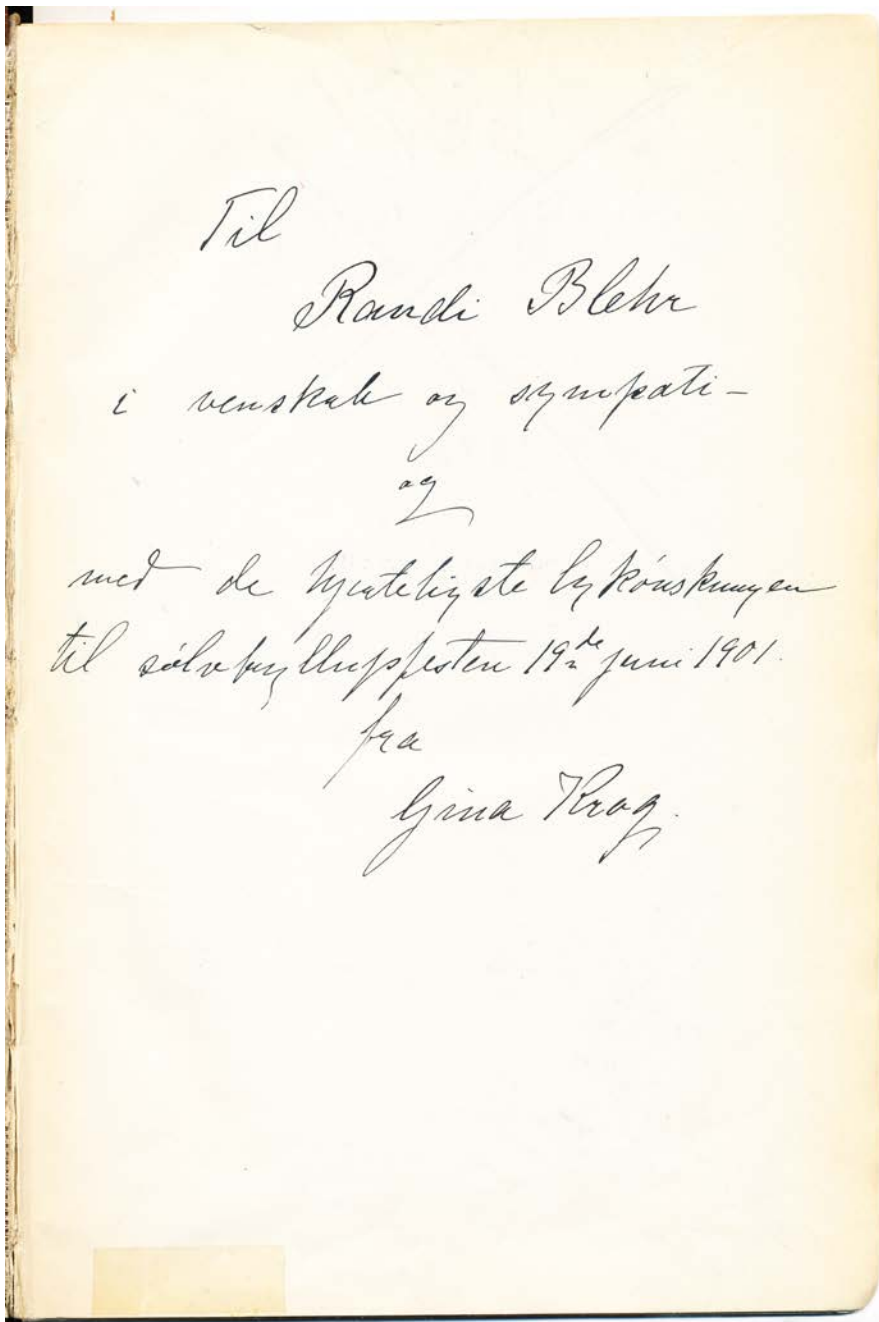 Til
Randi Blehr
i venskab og sympati –
og
med de hjerteligste lykønskninger
til sølvbryllupsfesten 19de juni 1901.
fra
Gina Krog.